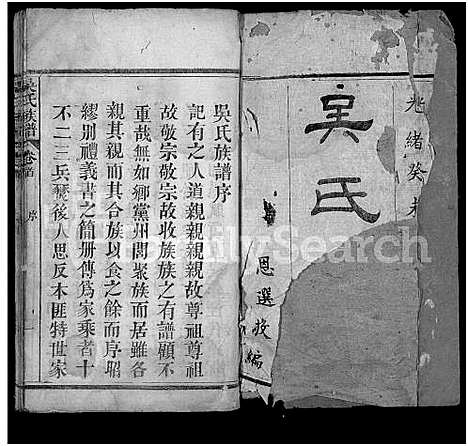 光緒癸未
吳氏
恩選校編
吳氏族譜序
記有之人道親親親親故尊祖尊祖
故敬宗敬宗故收族族之有譜顧不
重哉無如鄉黨州閭聚族而居雖各
親其親而其合族以食之餘而序昭
繆別禮義書之簡册傳爲家乘者十
不二三兵燹後人思反本匪特世家
吳氏族譜 卷首 序 一
FamilySearch